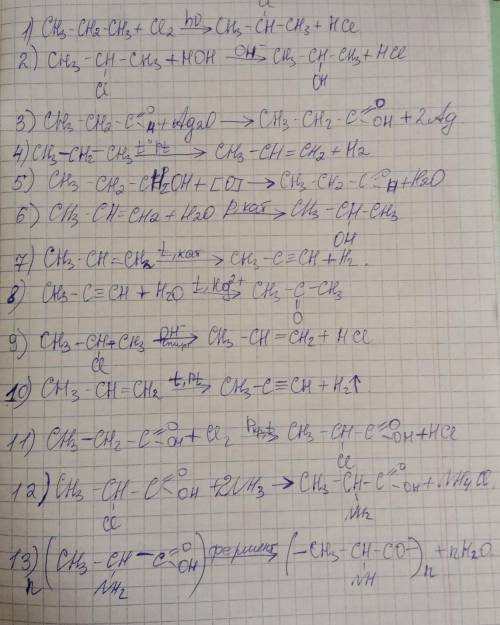 Cl
1) CH3-CH2-CH3 + Cl2 hυ→ CH3-CH-CH3 + HCl
2) CH3-CH-CH3 + HOH OH⁻→ CH3-CH-CH3 + HCl
Cl OH
3) CH3-CH2-C=O H + Ag2O → CH3-CH2-C=O OH + 2Ag
4) CH3-CH2-CH3 t°Pt→ CH3-CH=CH2 + H2
5) CH3-CH2-CH2OH + [O] → CH3-CH2-C=O H + H2O
6) CH3-CH=CH2 + H2O P,кат→ CH3-CH-CH3
OH
7) CH3-CH=CH2 t,кат→ CH3-C≡CH + H2.
8) CH3-C≡CH + H2O t,Hg2+→ CH3-C-CH3
O
9) CH3-CH+CH3 OH⁻ спирт→ CH3-CH=CH2 + HCl
Cl
10) CH3-CH=CH2 t,Pt→ CH3-C≡CH + H2↑
11) CH3-CH2-C=O OH + Cl2 Pкр→ CH3-CH-C=O OH + HCl
Cl
12) CH3-CH-C=O OH + 2NH3 → CH3-CH-C=O OH + NH4Cl
Cl NH2
13) n(CH3-CH-C=O OH) фермент→ (-CH3-CH-CO-)n + nH2O
NH2 NH